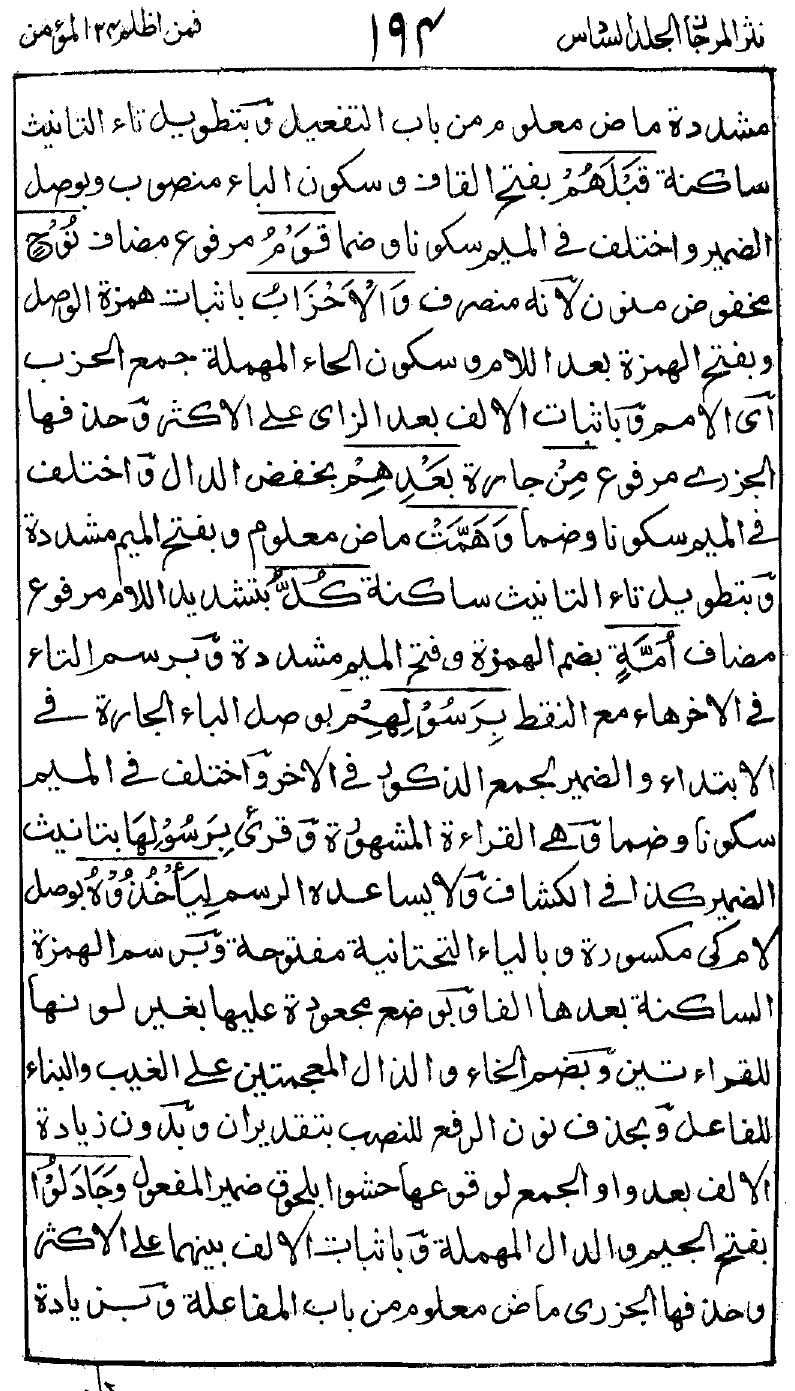 نثر المرجان الجلد السادس ١٩٤ فمن اظلم ٢٤ المؤمن
مشددة ماض معلوم من باب التفعيل وبتطويل تاء التانيث
ساكنة قَبْلَهُمْ بفتح القاف وسكون الباء منصوب وبوصل
الضمير واختلف في الميم سكونا وضما قَوْمُ مرفوع مضاف نُوْحٍ
مخفوض منون لانه منصرف وَالْاَحْزَابُ باثبات همزة الوصل
وبفتح الهمزة بعد اللام وسكون الحاء المهملة جمع الحزب
اى الامم وباثبات الالف بعد الزاى على الاكثر وحذفها
الجزرى مرفوع مِنْ جارة بَعْدِهِمْ بخفض الدال واختلف
في الميم سكونا وضما وَهَمَّتْ ماض معلوم وبفتح الميم مشددة
وبتطويل تاء التانيث ساكنة كُلُّ بتشديد اللام مرفوع
مضاف اُمَّةٍ بضم الهمزة وفتح الميم مشددة وبرسم التاء
في الاخر هاء مع النقط بِرَسُوْلِهِمْ بوصل الباء الجارة في
الابتداء والضمير لجمع الذكور في الاخر واختلف في الميم
سكونا وضما وهى القراءة المشهورة وقرئ بِرَسُوْلِهَا بتانيث
الضمير كذا في الكشاف ولا يساعده الرسم لِيَأْخُذُوْهُ بوصل
لام كى مكسورة وبالياء التحتانية مفتوحة وبرسم الهمزة
الساكنة بعدها الفا وبوضع مجعودة عليها بغير لونها
للقراءتين وبضم الخاء والذال المعجمتين على الغيب والبناء
للفاعل وبحذف نون الرفع للنصب بتقدير ان وبدون زيادة
الالف بعد واو الجمع لوقوعها حشوا بلحوق ضمير المفعول وَجَادَلُوْا
بفتح الجيم والدال المهملة وباثبات الالف بينهما على الاكثر
وحذفها الجزرى ماض معلوم من باب المفاعلة وبزيادة